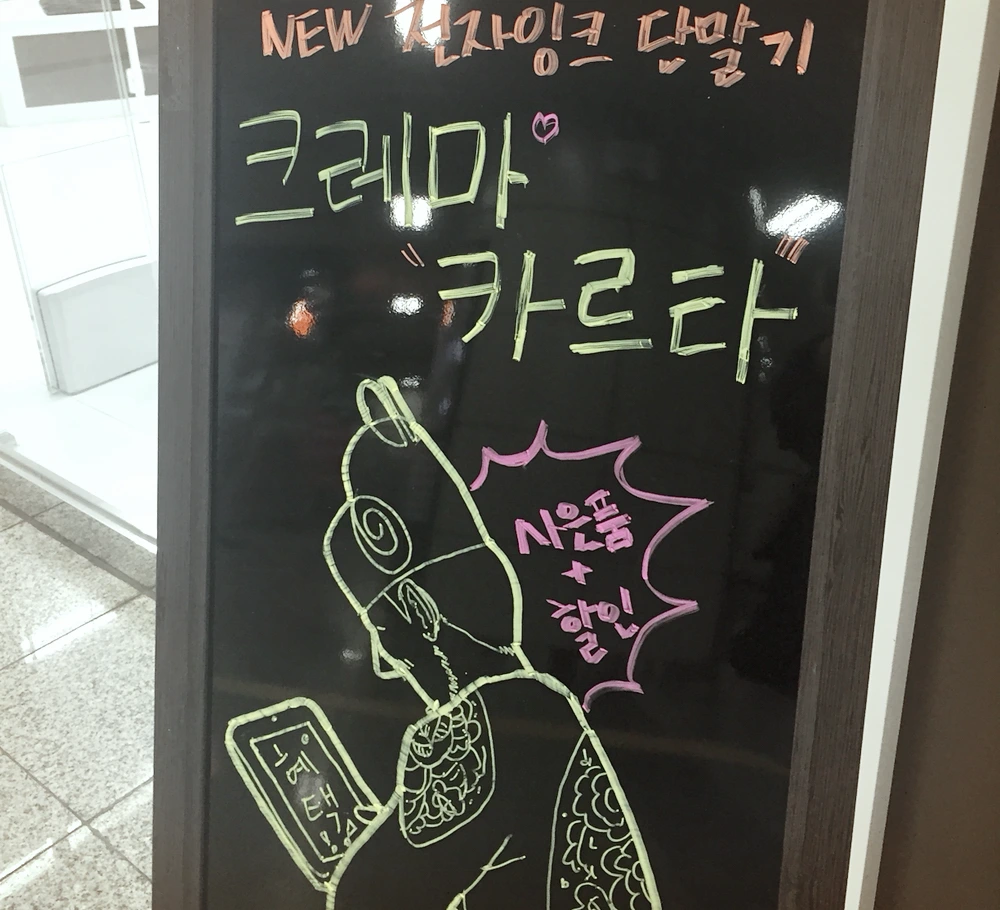 NEW 전자잉크 단말기
크레마
"카르타"
사은품
+
할인